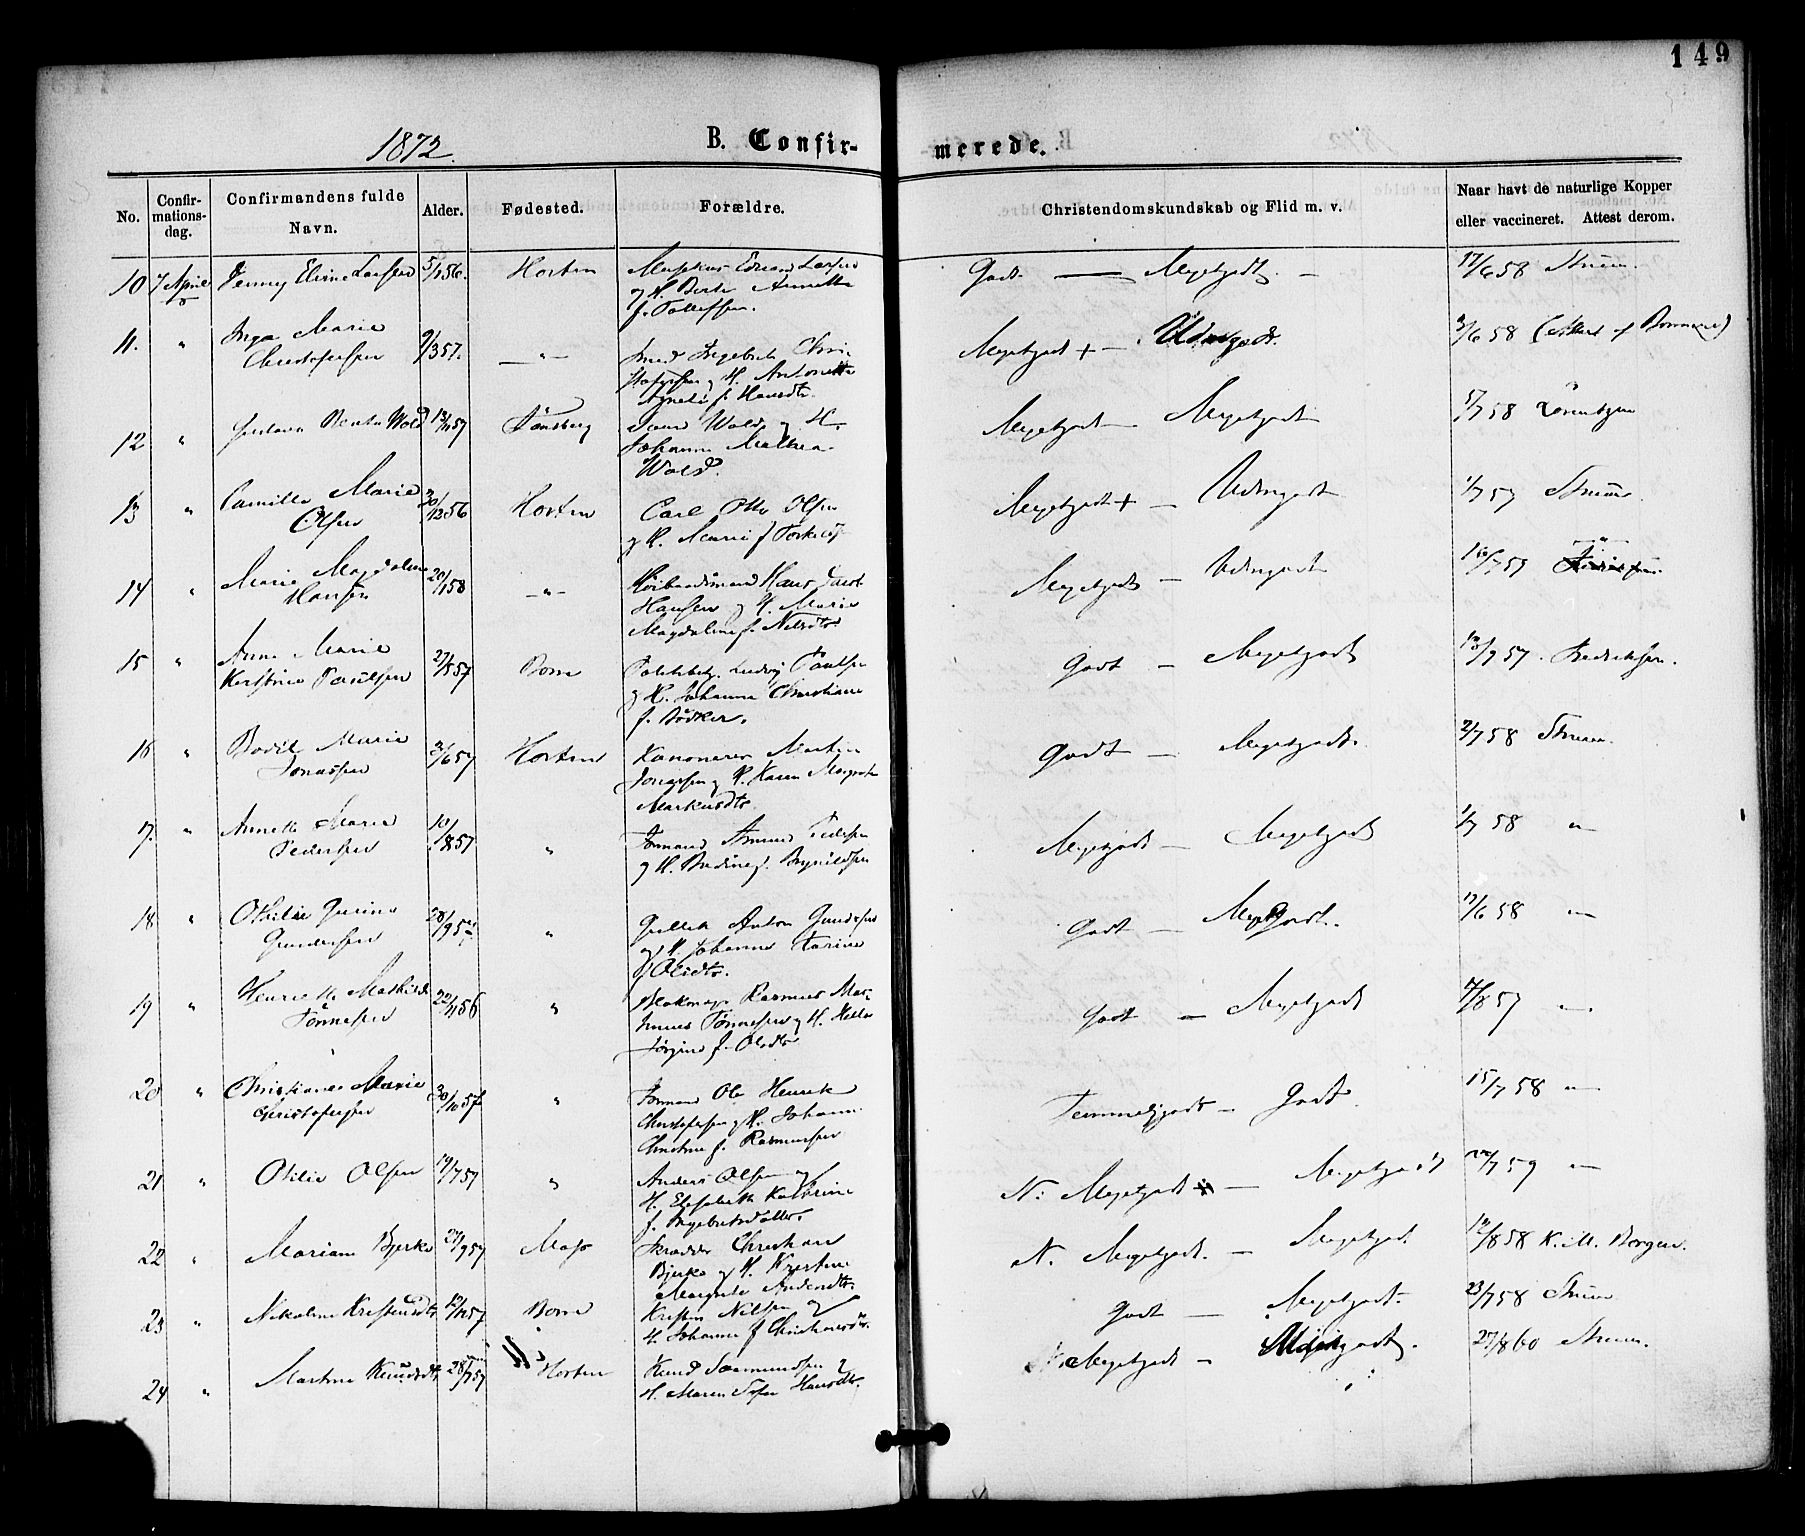 149
1872. B. Confirmerede.
No. Confirmationsdag. Confirmandens fulde Navn. Alder. Fødested. Forældre. Christendomskundskab og Flid m. v. Naar havt de naturlige Kopper eller vaccineret. Attest derom.
10 7 April Jenny Elvine Larssen 5/1 56. Horten Eduard Larsen
og H. Berte Annette
f. Tollefsen.
Godt — Megetgodt — 17/6 58 Struve.
11. " Inga Marie
Christofersen 9/3 57. — " — Smed Ingebret Chri-
stofersen og H. Antonette
f. Hansdtr.
Megetgodt + — Udmgodt. /6 58
12 " Bente Wold /11 57 Tønsberg Wold og H.
Johanne Mathea
Wold.
Megetgodt — Megetgodt /7 58 Lorentzen
13 " Camilla Marie
Olsen 30/12 56 Horten Carl Otto Olsen
og H. Marie f. Torkelds
Megetgodt + — Udmgodt 1/7 57 Struve
14 " Marie Magdalene
Hansen 20/1 58 — " — Høibaadsmand Hans Jacob
Hansen og H. Marie
Magdalene f. Nilsdtr.
Megetgodt — Udmgodt 16/7 59
15 " Anne Marie
Kerstine Paulsen 27/5 57 Borre Ludvig Paulsen
og H. Johanne Christiane
f. Bödker.
Godt — Megetgodt 13/9 57. Fredriksen.
16 " Bodil Marie
Jonassen /6 57 Horten Kanoneer Martin
Jonassen og H. Karen Margrete
Markusdtr.
Godt — Megetgodt. 2/7 58 Struve.
17. " Annette Marie
Pedersen 10/8 57 " Tømmermand Pedersen
og H. f. Brynildsen
Megetgodt — Megetgodt 1/7 58 "
18 " Othilie Gurine
Gundersen 28/9 57 " Gullik Anton Gundersen
og H. Johanne Karine
f. Olsdtr.
Godt — Megetgodt. 17/6 58 "
19 " Henriette Mathilde
Tönnesen 22/11 56 " Rasmus Mar-
tinius Tönnesen og H. Helle
Jörgine f. Olsdtr
Godt — Megetgodt /8 57 "
20 " Christiane Marie
Christofersen 30/10 57 " Tømmermand Ole Henrik
Christofersen og H. Johanne
Christine f. Rasmussen
Temmeliggodt — Godt 15/7 58 "
21 " Otilie Olsen 19/7 57 " Anders Olsen og
H. Elisabeth Kathrine
f. Ingebretsdatter.
N: Megetgodt — Megetgodt /7 59 "
22 " Mariane Bjerke 27/9 57 Moss Skræder Christian
Bjerke og H. Kirstine
Margrete Andersdtr.
N. Megetgodt. — Megetgodt 12/8 58 K. M. Borgen.
23 " Nikoline Kristensdtr 12/11 57 Borre Kristen Nilsen og
H. Johanne f. Christiansdtr.
Godt — Megetgodt. 23/7 58 Struve
24 " Martine Knudsdtr 28/7 57 Horten Knud Saamundsen og
H. Maren Sofie Hansdtr.
Megetgodt — Megetgodt. 27/8 60 Struve.